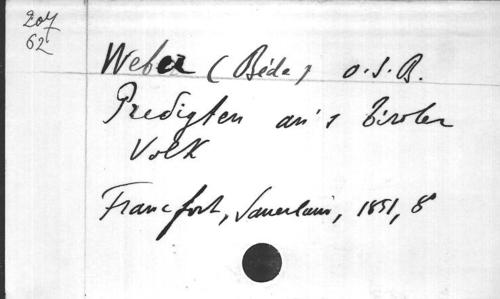 207
62
Weber (Béda) O.S.B.
Predigten an's Tiroler
Volk
Francfort, Sauerlain, 1851, 8°